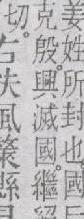 姜姓所封也國
克殷興滅國繼絕
切
右扶風漦縣是